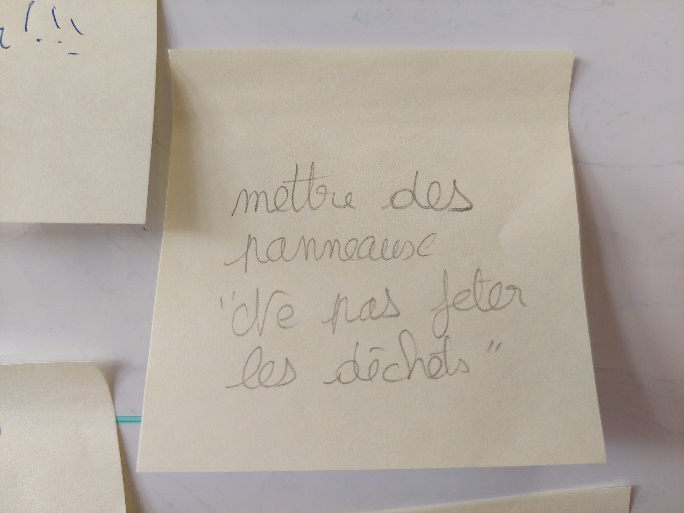 !!!
mettre des
panneaux
"Ne pas jeter
les déchets"